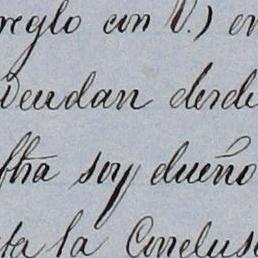 reglo con V.) en
Deudan desde
ftra soy dueño
ta la Conclus